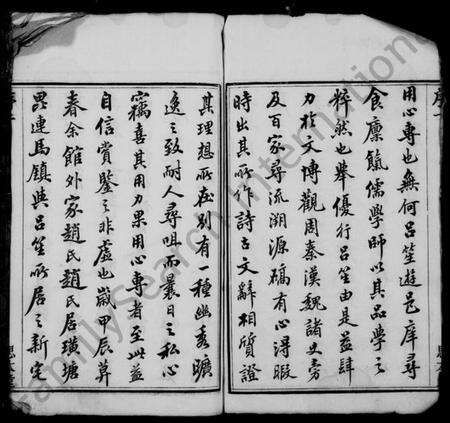 用心專也無何呂笙遊邑庠尋
食廩餼儒學師以其品學之
粹然也舉優行呂笙由是益肆
力於文博觀周秦漢魏諸史旁
及百家尋流溯源確有心得暇
時出其所作詩古文辭相質證
其理想所在別有一種幽秀曠
逸之致耐人尋咀而曩日之私心
竊喜其用力果用心專者至此益
自信賞鑒之非虛也歲甲辰算
春余館外家趙氏趙氏居璜塘
毘連馬鎮與呂笙所居之新宅
FamilySearch International